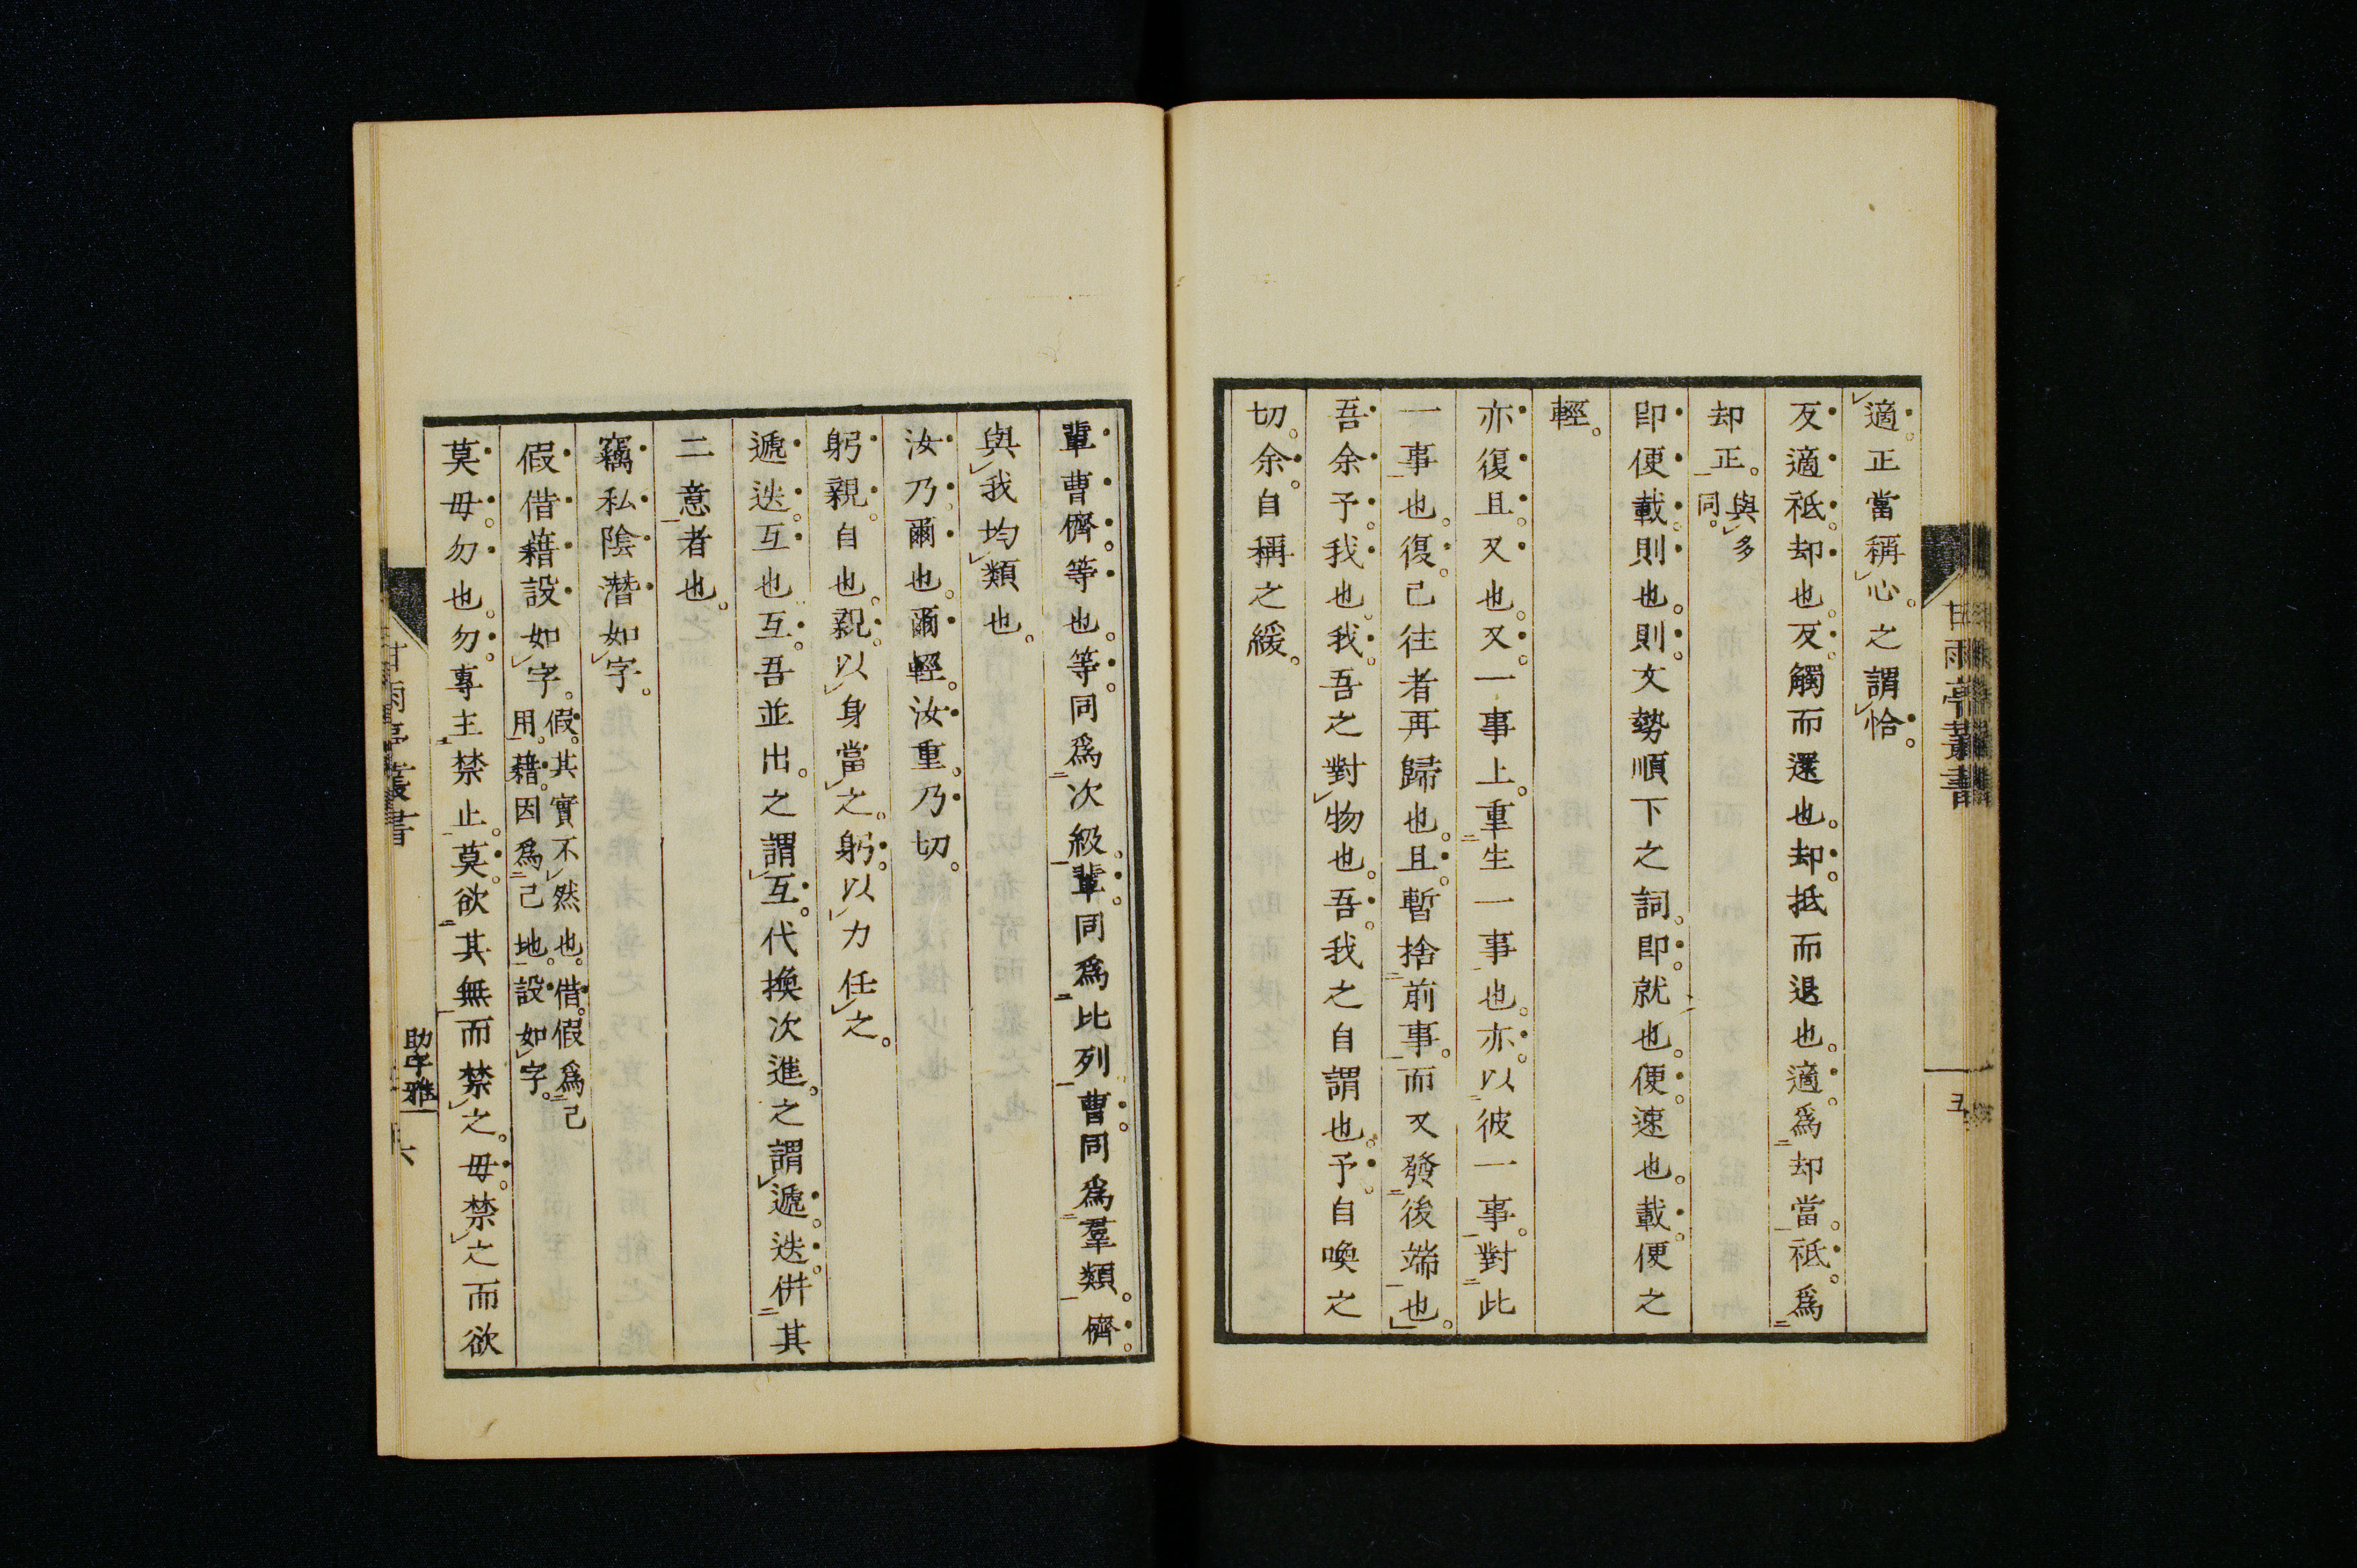 適。正當稱心。之謂恰。
反適祗却也。反觸而還也。却抵而退也。適爲却當。祗爲
却正。與多同。
即便載則也。則文勢順下之詞。即就也。便速也。載便之
輕。
亦復且又也。又一事上。重生一事也。亦以彼一事。對此
一事也。復已往者再歸也。且暫捨前事。而又發後端也。
吾余予我也。我吾之對物也。吾我之自謂也。予自喚之
切。余自稱之緩。
甘雨亭叢書
五
輩曹儕等也。等同爲次級。輩同爲比列。曹同爲羣類。儕
與我均類也。
汝乃爾也。爾輕。汝重。乃切。
躬親自也。親以身當之。躬以力任之。
遞迭互也。互吾並出。之謂互。代換次進。之謂遞。迭併其
二意者也。
竊私陰潛如字。
假借藉設如字。假。其實不然也。借。假爲己
用。藉。因爲己地。設如字。
莫毋勿也。勿專主禁止。莫欲其無而禁之。毋禁之而欲
甘雨亭叢書
助字雅
六